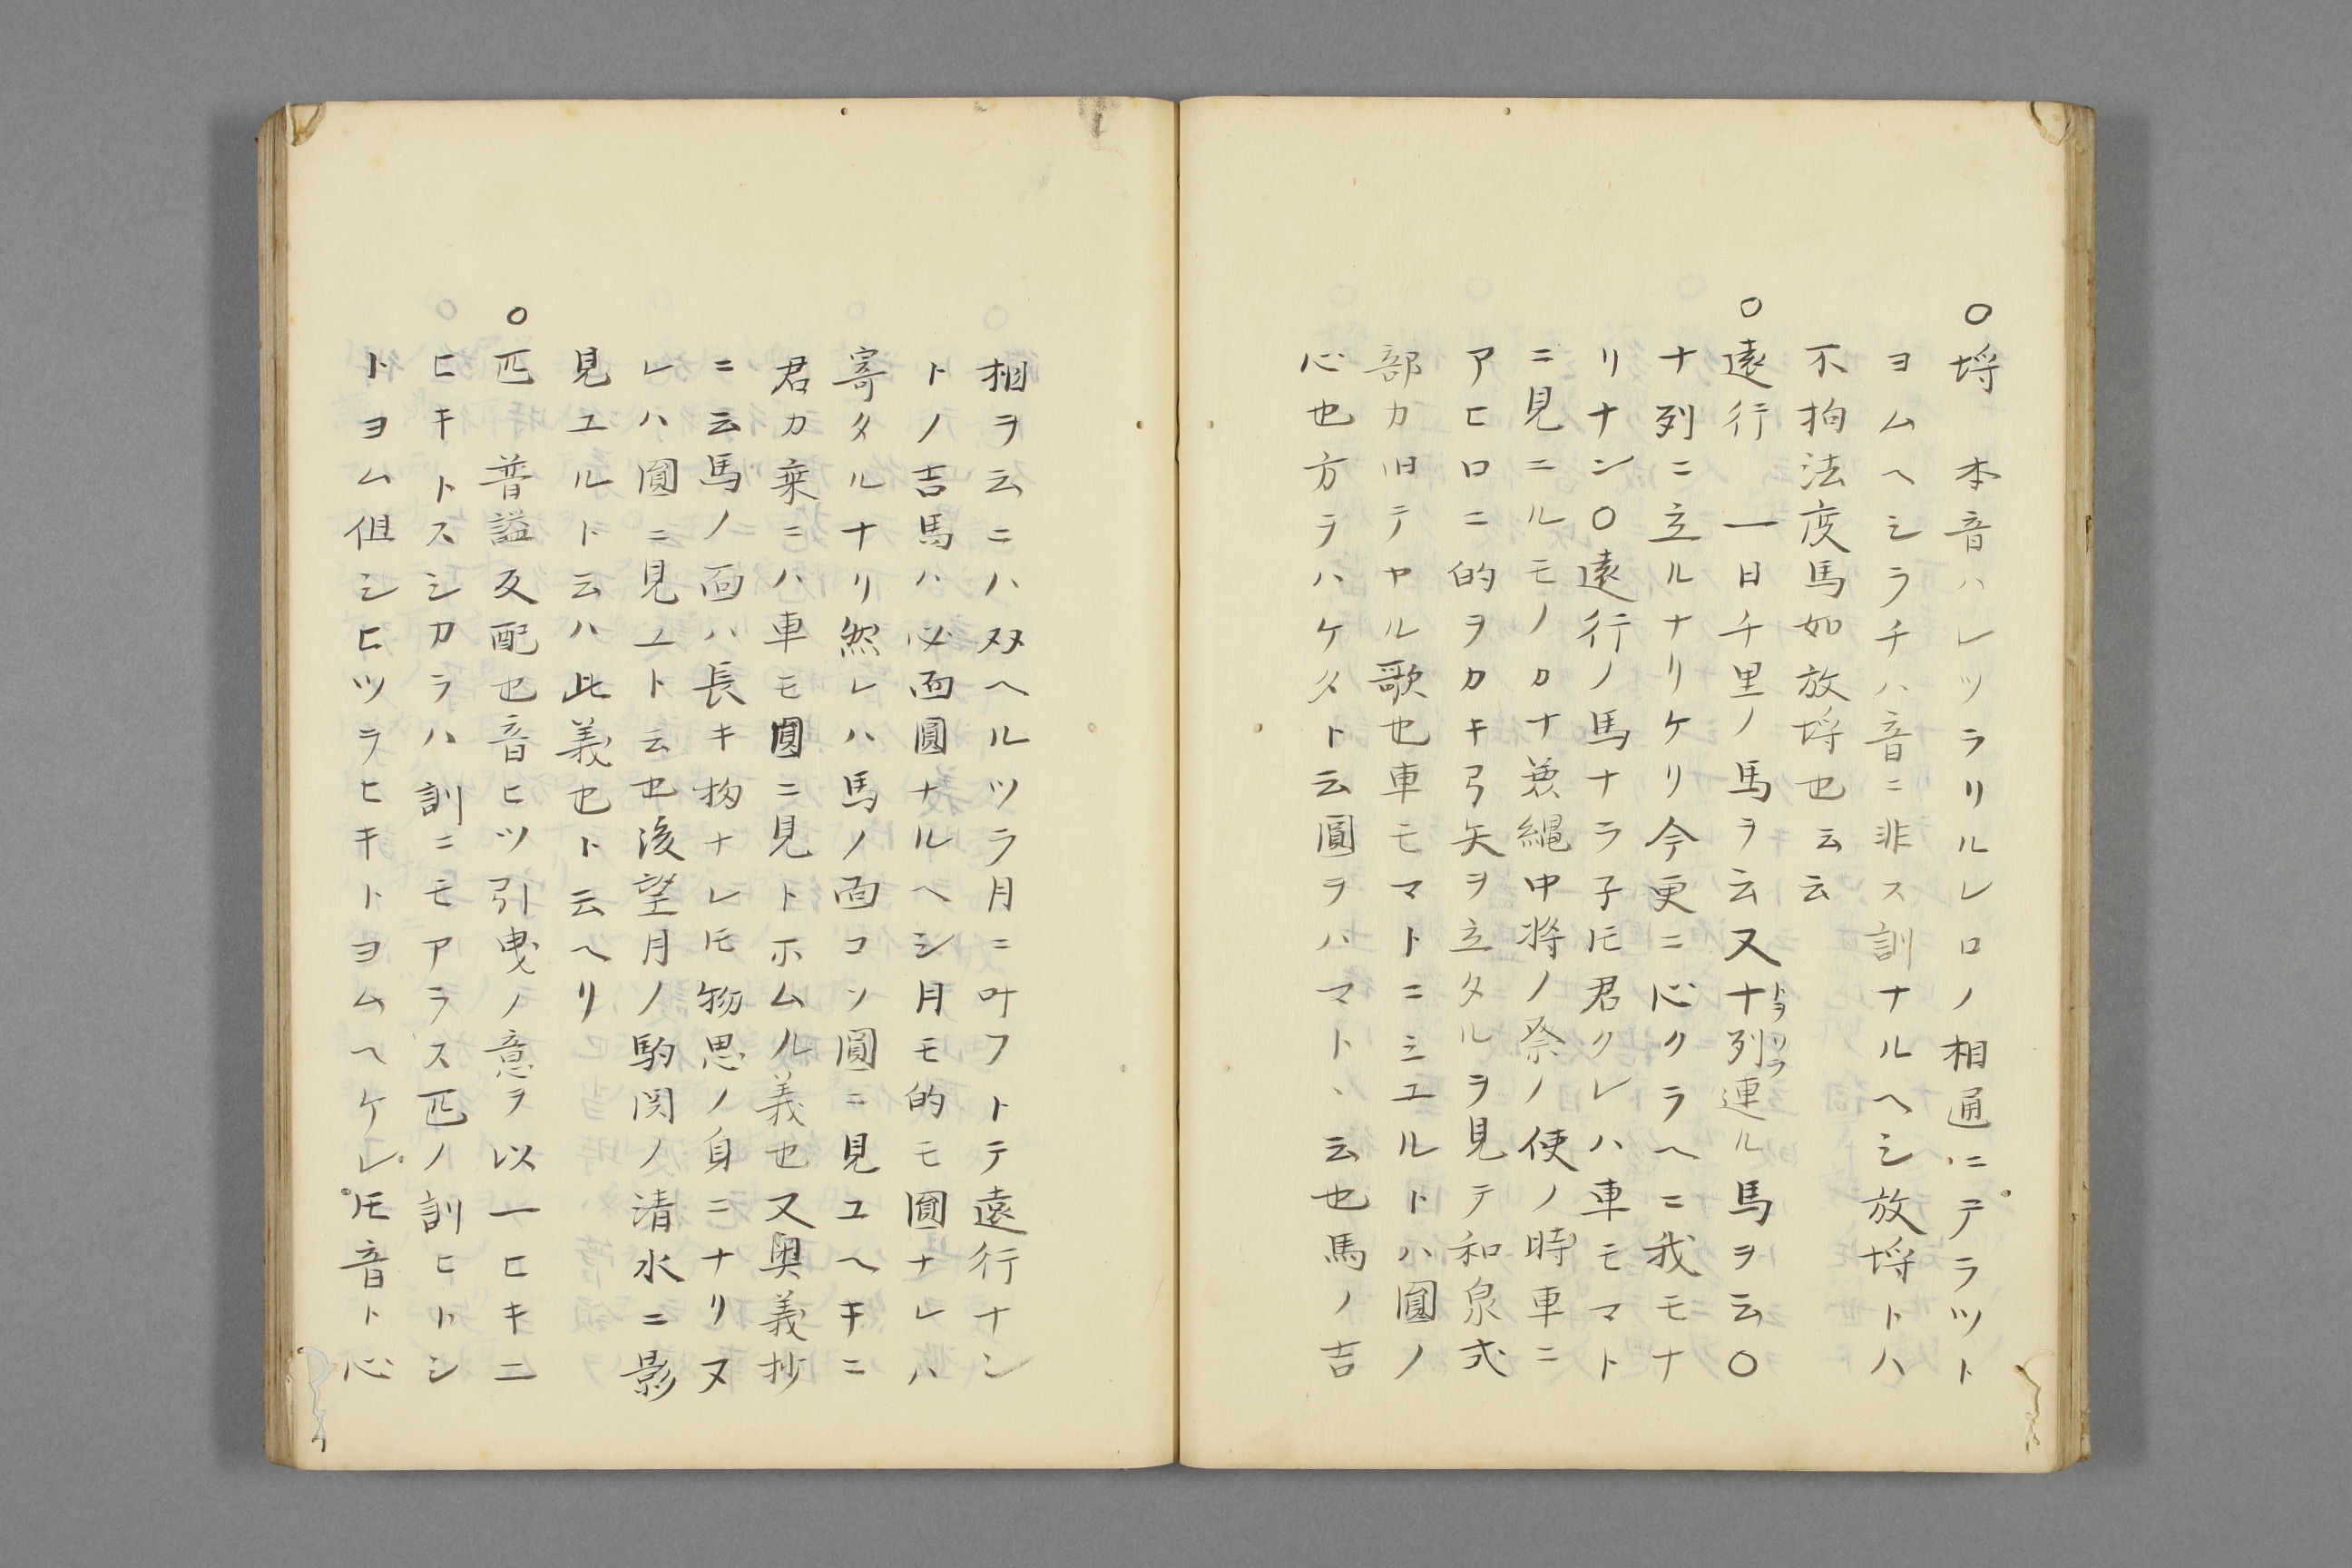 ○埒　本音ハレツラリルレロノ相通ニテラツト
ヨムヘシラチハ音ニ非ス訓ナルヘシ放埒トハ
不拘法度馬如放埒也云云
○遠行　一日千里ノ馬ヲ云又十列連ル馬ヲ云○
ナ列ニ立ルナリケリ今更ニ心クラヘニ我モナ
リナン○遠行ノ馬ナラ子𪜈君クレハ車モマト
ニ見ニルモノカナ兼縄中将ノ祭ノ使ノ時車ニ
アヒロニ的ヲカキ弓矢ヲ立タルヲ見テ和泉式
部カ旧テヤル歌也車モマトニミユルトハ圓ノ
心也方ヲハケタト云圓ヲハマトヽ云也馬ノ吉
相ヲ云ニハ双ヘルツラ月ニ叶フトテ遠行ナン
トノ吉馬ハ必面圓ナルヘシ月モ的モ圓ナレハ
寄タルナリ然レハ馬ノ面コソ圓ニ見ユヘキニ
君カ乗ニハ車モ圓ニ見トホムル義也又奥義抄
ニ云馬ノ面ハ長キ物ナレ𪜈物思ノ身ニナリヌ
レハ圓ニ見ユト云也後望月ノ駒関ノ清水ニ影
見ユルト云ハ此義也ト云ヘリ
○匹　普謚反配也音ヒツ引曳ノ意ヲ以一ヒキニ
ヒキトスシカラハ訓ニモアラス匹ノ訓ヒトシ
トヨム但シヒツラヒキトヨムヘケレ𪜈音ト心